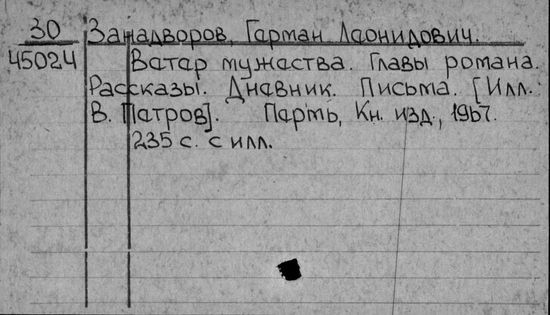 30 Занадворов, Герман Леонидович.
45024 Ветер мужества. Главы романа.
Рассказы. Дневник. Письма. [Илл.:
В. Петров]. Пермь, Кн. изд., 1967.
235 с. с илл.